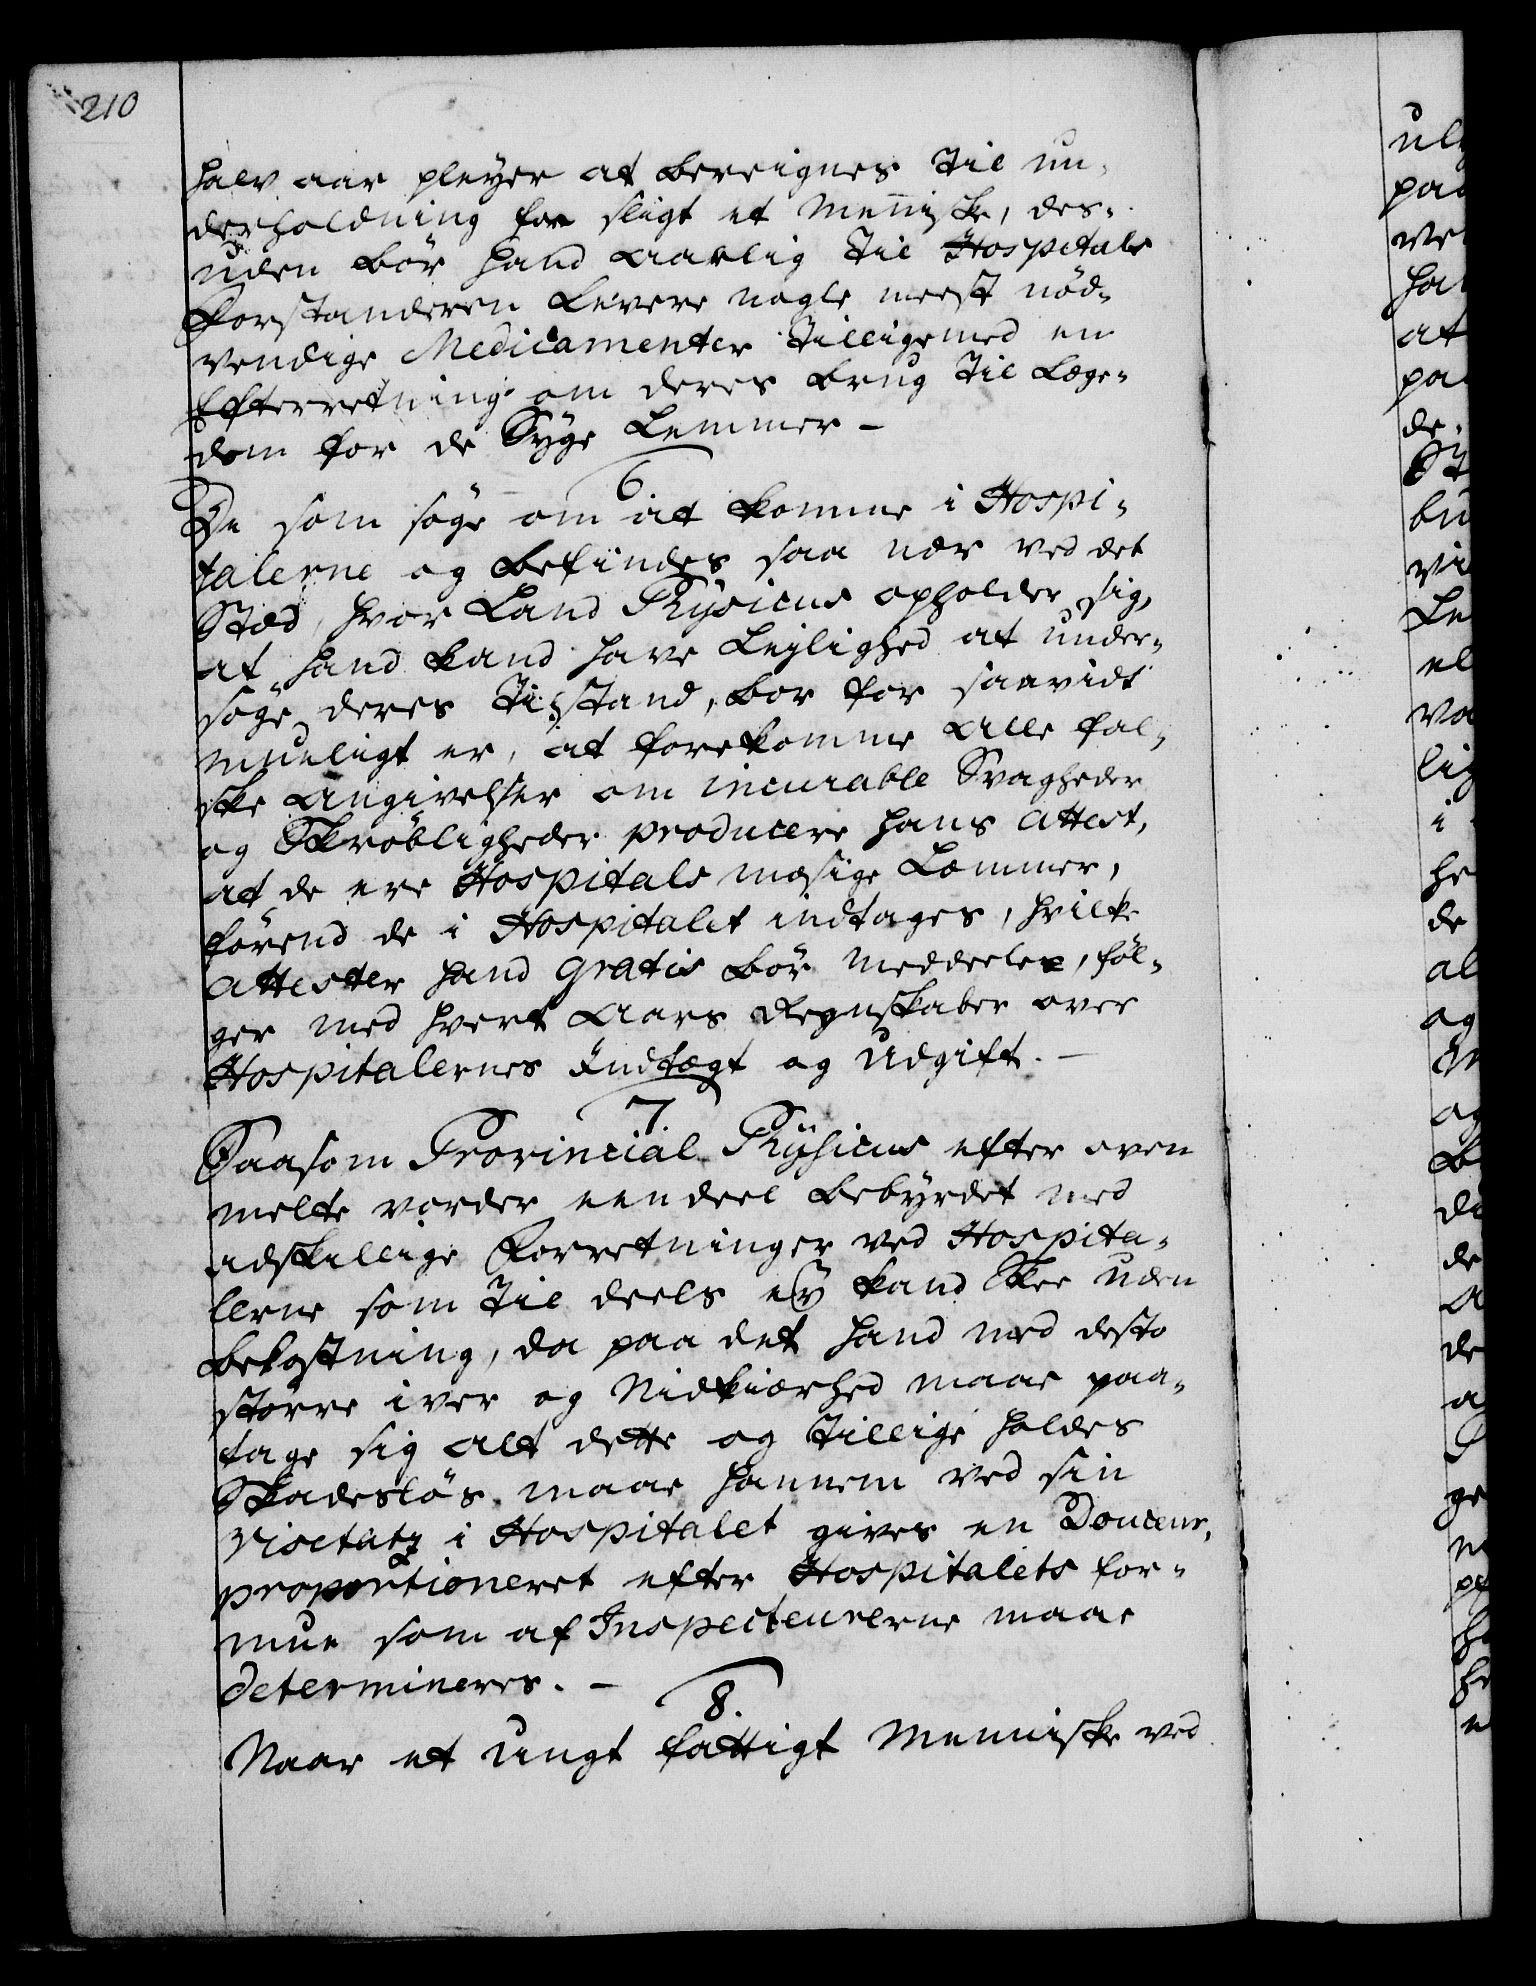 210
halv aar pleÿer at bereignes til un-
derholdning for sligt et Menniske, des-
uden bör hand aarlig til Hospitals
Forstanderen levere nogle meest nöd-
vendige Medicamenter tilligemed en
Efterretning om deres brug til Læge-
dom for de Syge Lemmer -
6
De som söge om at komme i Hospi-
talerne og befindes saa nær ved det
Stæd, hvor Land Physicus opholder sig,
at hand kand have Lejlighed at under-
söge deres Tilstand, bör for saavidt
mueligt er, at forekomme alle fal-
ske angivelser om incurable Svagheder
og Skröbligheder producere hans attest,
at de ere Hospitals mæsige Lemmer,
förend de i Hospitalet indtages, hvilke
attester hand gratis bör meddeele, föl-
ger med hvert aars Regnskaber over
Hospitalernes Indtægt og Udgift. -
7.
Saasom Provincial Physicus efter oven
melte vorder een deel bebyrdet med
adskillige Forretninger ved Hospita-
lerne som til deels eÿ kand skee uden
bekostning, da paa det hand med desto
större iver og Nidkiærhed maae paa-
tage sig alt dette og tillige holdes
Skadeslös maae hannem ved sin
Visetatz i Hospitalet gives en Douceur,
proportioneret efter Hospitalets for-
mue som af Inspecteurerne maae
determineres. -
8.
Naar et ungt fattigt Menniske ved